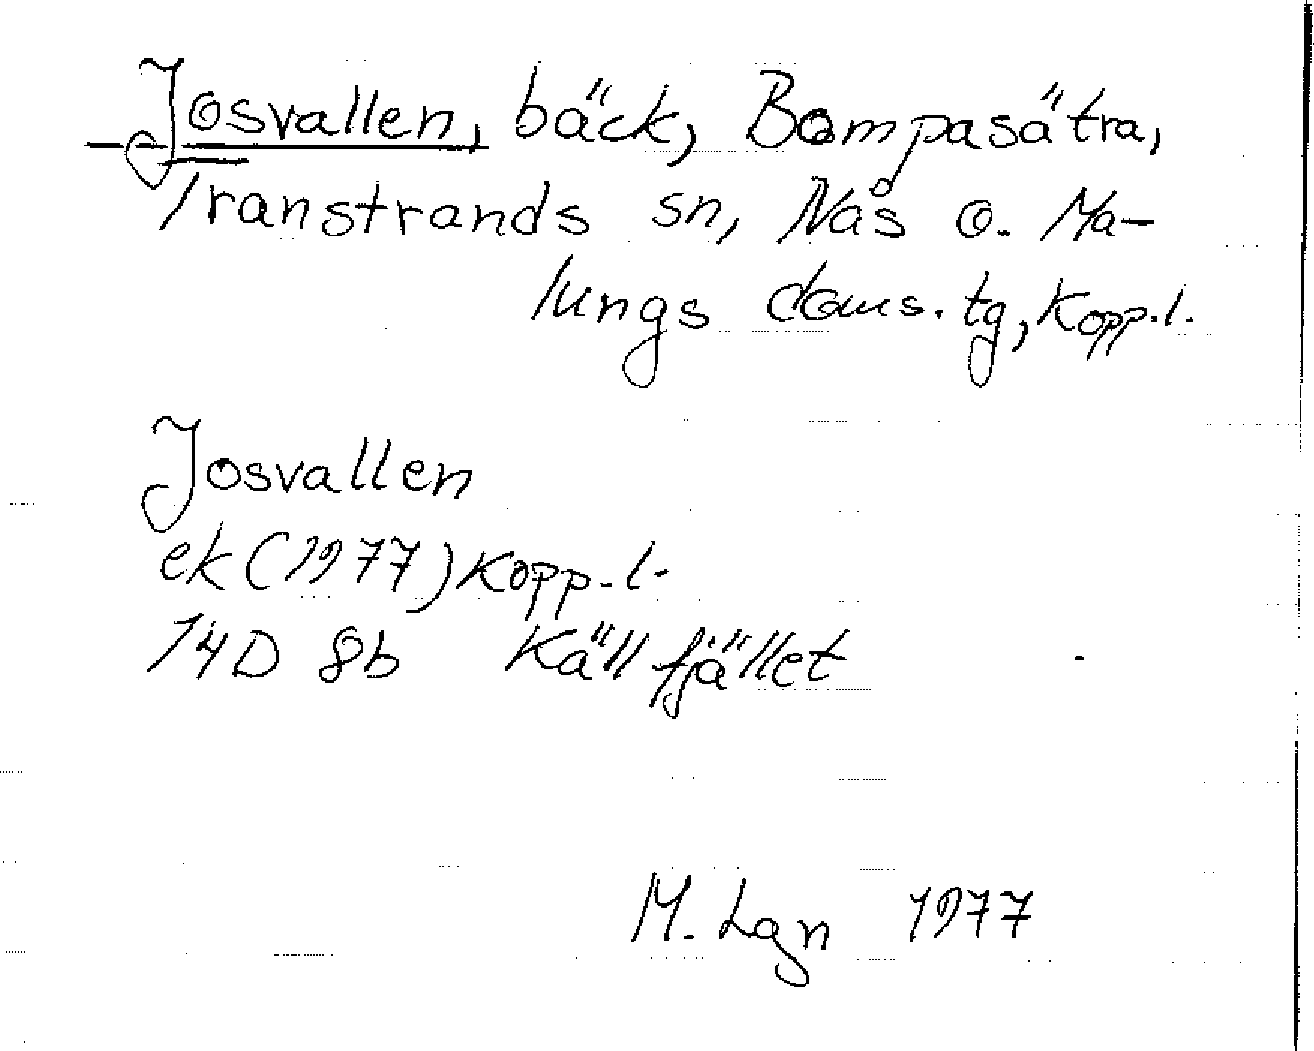 Josvallen, bäck, Bompasätra,
Transtrands sn, Nås o. Ma-
lungs doms. tg, Kopp.l.
Josvallen
ek (1977) Kopp.l.
14D 8b Källfjället
M. Lgn 1977